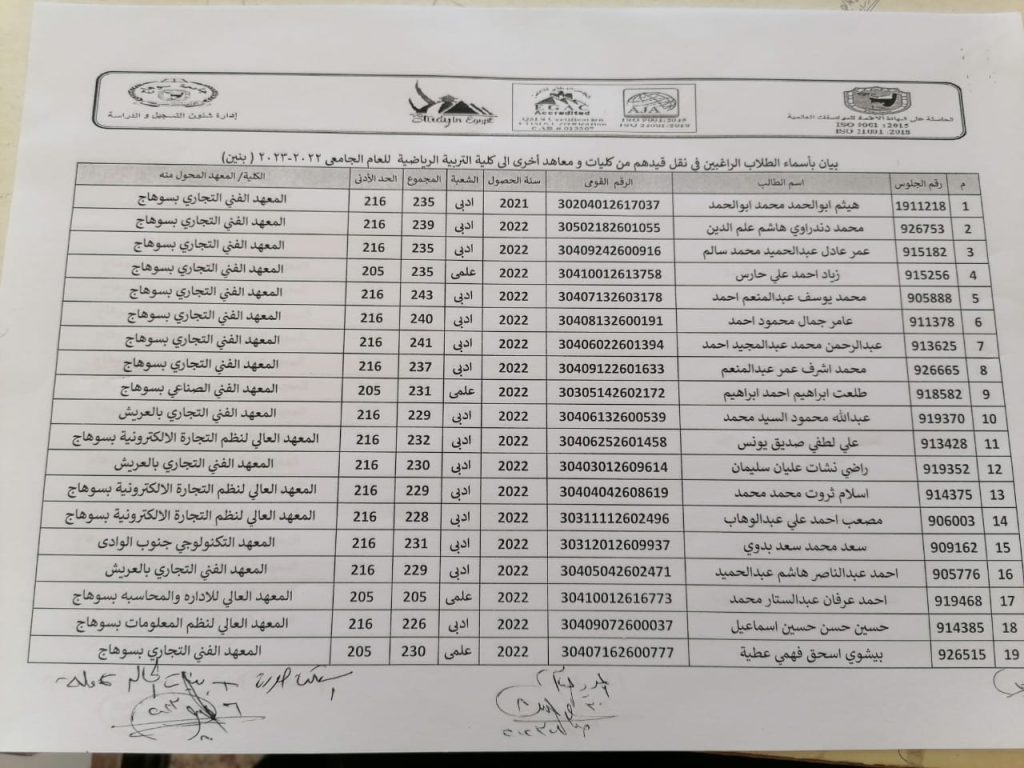 إدارة شئون التسجيل و الدراسة
Study in Egypt
EGAC
Accredited
AJA
الحاصلة على شهادة الاعتماد للمواصفات العالمية
ISO 9001 : 2015
ISO 21001 : 2018
بيان بأسماء الطلاب الراغبين في نقل قيدهم من كليات و معاهد أخرى الى كلية التربية الرياضية للعام الجامعى ٢٠٢٢-٢٠٢٣ ( بنين)
م رقم الجلوس اسم الطالب الرقم القومى سنة الحصول الشعبة المجموع الحد الأدنى الكلية/ المعهد المحول منه
1 1911218 هيثم ابوالحمد محمد ابوالحمد 30204012617037 2021 ادبى 235 216 المعهد الفني التجاري بسوهاج
2 926753 محمد دندراوي هاشم علم الدين 30502182601055 2022 ادبى 239 216 المعهد الفني التجاري بسوهاج
3 915182 عمر عادل عبدالحميد محمد سالم 30409242600916 2022 ادبى 235 216 المعهد الفني التجاري بسوهاج
4 915256 زياد احمد علي حارس 30410012613758 2022 علمى 235 205 المعهد الفني التجاري بسوهاج
5 905888 محمد يوسف عبدالمنعم احمد 30407132603178 2022 ادبى 243 216 المعهد الفني التجاري بسوهاج
6 911378 عامر جمال محمود احمد 30408132600191 2022 ادبى 240 216 المعهد الفني التجاري بسوهاج
7 913625 عبدالرحمن محمد عبدالمجيد احمد 30406022601394 2022 ادبى 241 216 المعهد الفني التجاري بسوهاج
8 926665 محمد اشرف عمر عبدالمنعم 30409122601633 2022 ادبى 237 216 المعهد الفني التجاري بسوهاج
9 918582 طلعت ابراهيم احمد ابراهيم 30305142602172 2022 علمى 231 205 المعهد الفني الصناعي بسوهاج
10 919370 عبدالله محمود السيد محمد 30406132600539 2022 ادبى 229 216 المعهد الفني التجاري بالعريش
11 913428 علي لطفي صديق يونس 30406252601458 2022 ادبى 232 216 المعهد العالي لنظم التجارة الالكترونية بسوهاج
12 919352 راضي نشات عليان سليمان 30403012609614 2022 ادبى 230 216 المعهد الفني التجاري بالعريش
13 914375 اسلام ثروت محمد محمد 30404042608619 2022 ادبى 229 216 المعهد العالي لنظم التجارة الالكترونية بسوهاج
14 906003 مصعب احمد علي عبدالوهاب 30311112602496 2022 ادبى 228 216 المعهد العالي لنظم التجارة الالكترونية بسوهاج
15 909162 سعد محمد سعد بدوي 30312012609937 2022 ادبى 231 216 المعهد التكنولوجي جنوب الوادى
16 905776 احمد عبدالناصر هاشم عبدالحميد 30405042602471 2022 ادبى 229 216 المعهد الفني التجاري بالعريش
17 919468 احمد عرفان عبدالستار محمد 30410012616773 2022 علمى 205 205 المعهد العالي للاداره والمحاسبه بسوهاج
18 914385 حسين حسن حسين اسماعيل 30409072600037 2022 ادبى 226 216 المعهد العالي لنظم المعلومات بسوهاج
19 926515 بيشوي اسحق فهمي عطية 30407162600777 2022 علمى 230 205 المعهد الفني التجاري بسوهاج